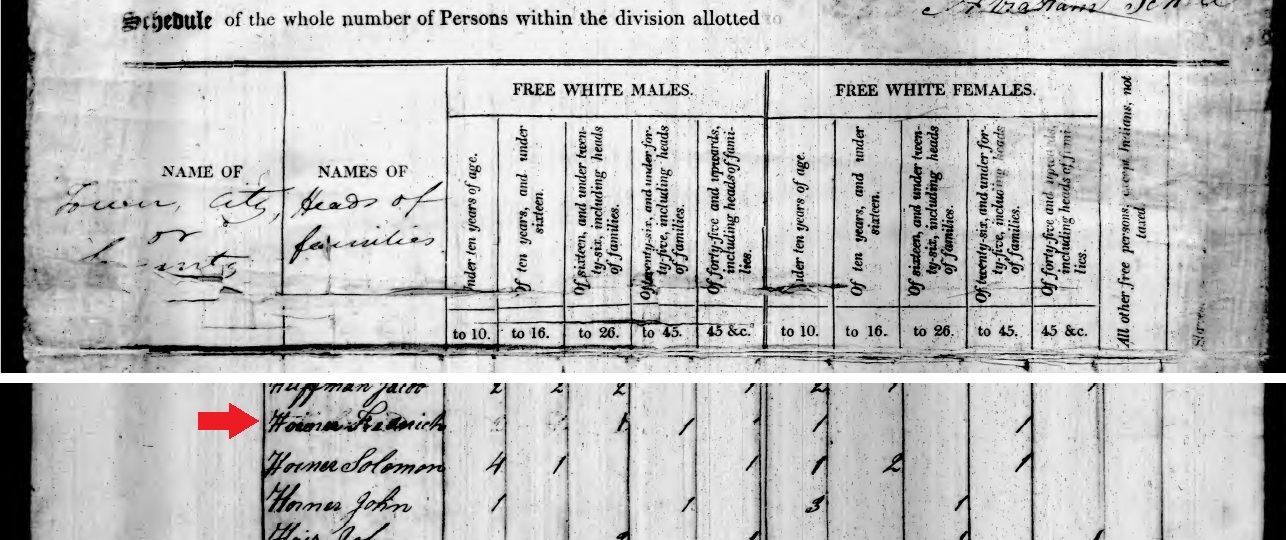 Schedule of the whole number of Persons within the division allotted to Abraham
NAME OF
Town, City,
or
County
NAMES OF
Heads of
families
FREE WHITE MALES.
Under ten years of age.
Of ten years, and under sixteen.
Of sixteen, and under twen-
ty-six, including heads
of families.
Of twenty-six, and under for-
ty-five, including heads
of families.
Of forty-five and upwards,
including heads of fami-
lies.
FREE WHITE FEMALES.
Under ten years of age.
Of ten years, and under sixteen.
Of sixteen, and under twen-
ty-six, including heads
of families.
Of twenty-six, and under for-
ty-five, including heads
of families.
Of forty-five and upwards,
including heads of fami-
lies.
All other free persons, except Indians, not taxed.
Slaves.
to 10. to 16. to 26. to 45. 45 &c. to 10. to 16. to 26. to 45. 45 &c.
Huffman Jacob 2 2 2 1 2 1 1
Horner Frederick 1 1 1 1
Horner Solomon 4 1 1 1 2 1
Horner John 1 1 3 1